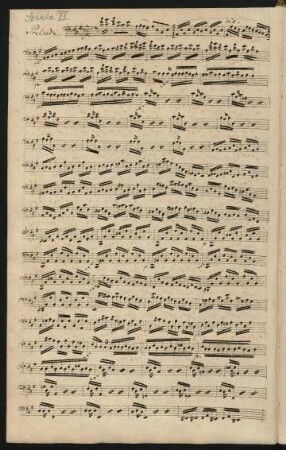 Sonata VI.
Prelude